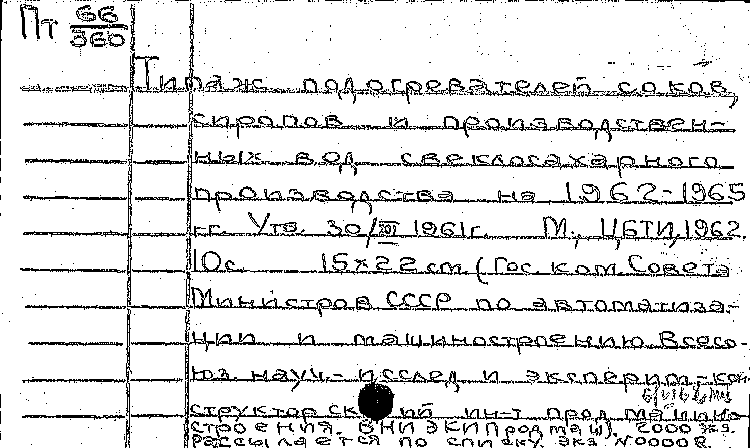 Пт 66/360
Типаж подогревателей соков,
сиропов и производствен-
ных вод свеклосахарного
производства на 1962-1965
гг. Утв. 30/XII 1961г. М., ЦБТИ, 1962.
10с. 15×22 cm (Гос. ком. Совета
Министров СССР по автоматиза-
ции и машиностроению. Всесо-
юз. науч.-исслед и эксперим.-кон-
структорский ин-т прод машино-
строения. ВНИЭКИПродмаш). 2000 экз.
Рассылается по списку. экз N00008.